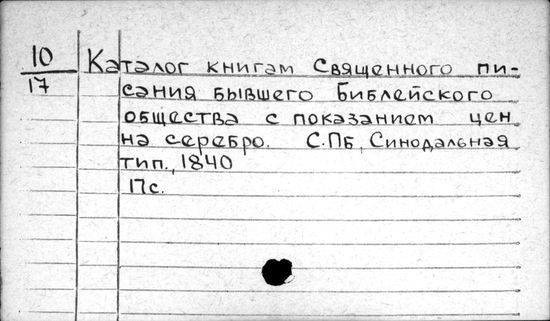 10
17
Каталог книгам Священного пи-
сания бывшего Библейского
общества с показанием цен
на серебро. С.ПБ, Синодальная
тип., 1840
17с.